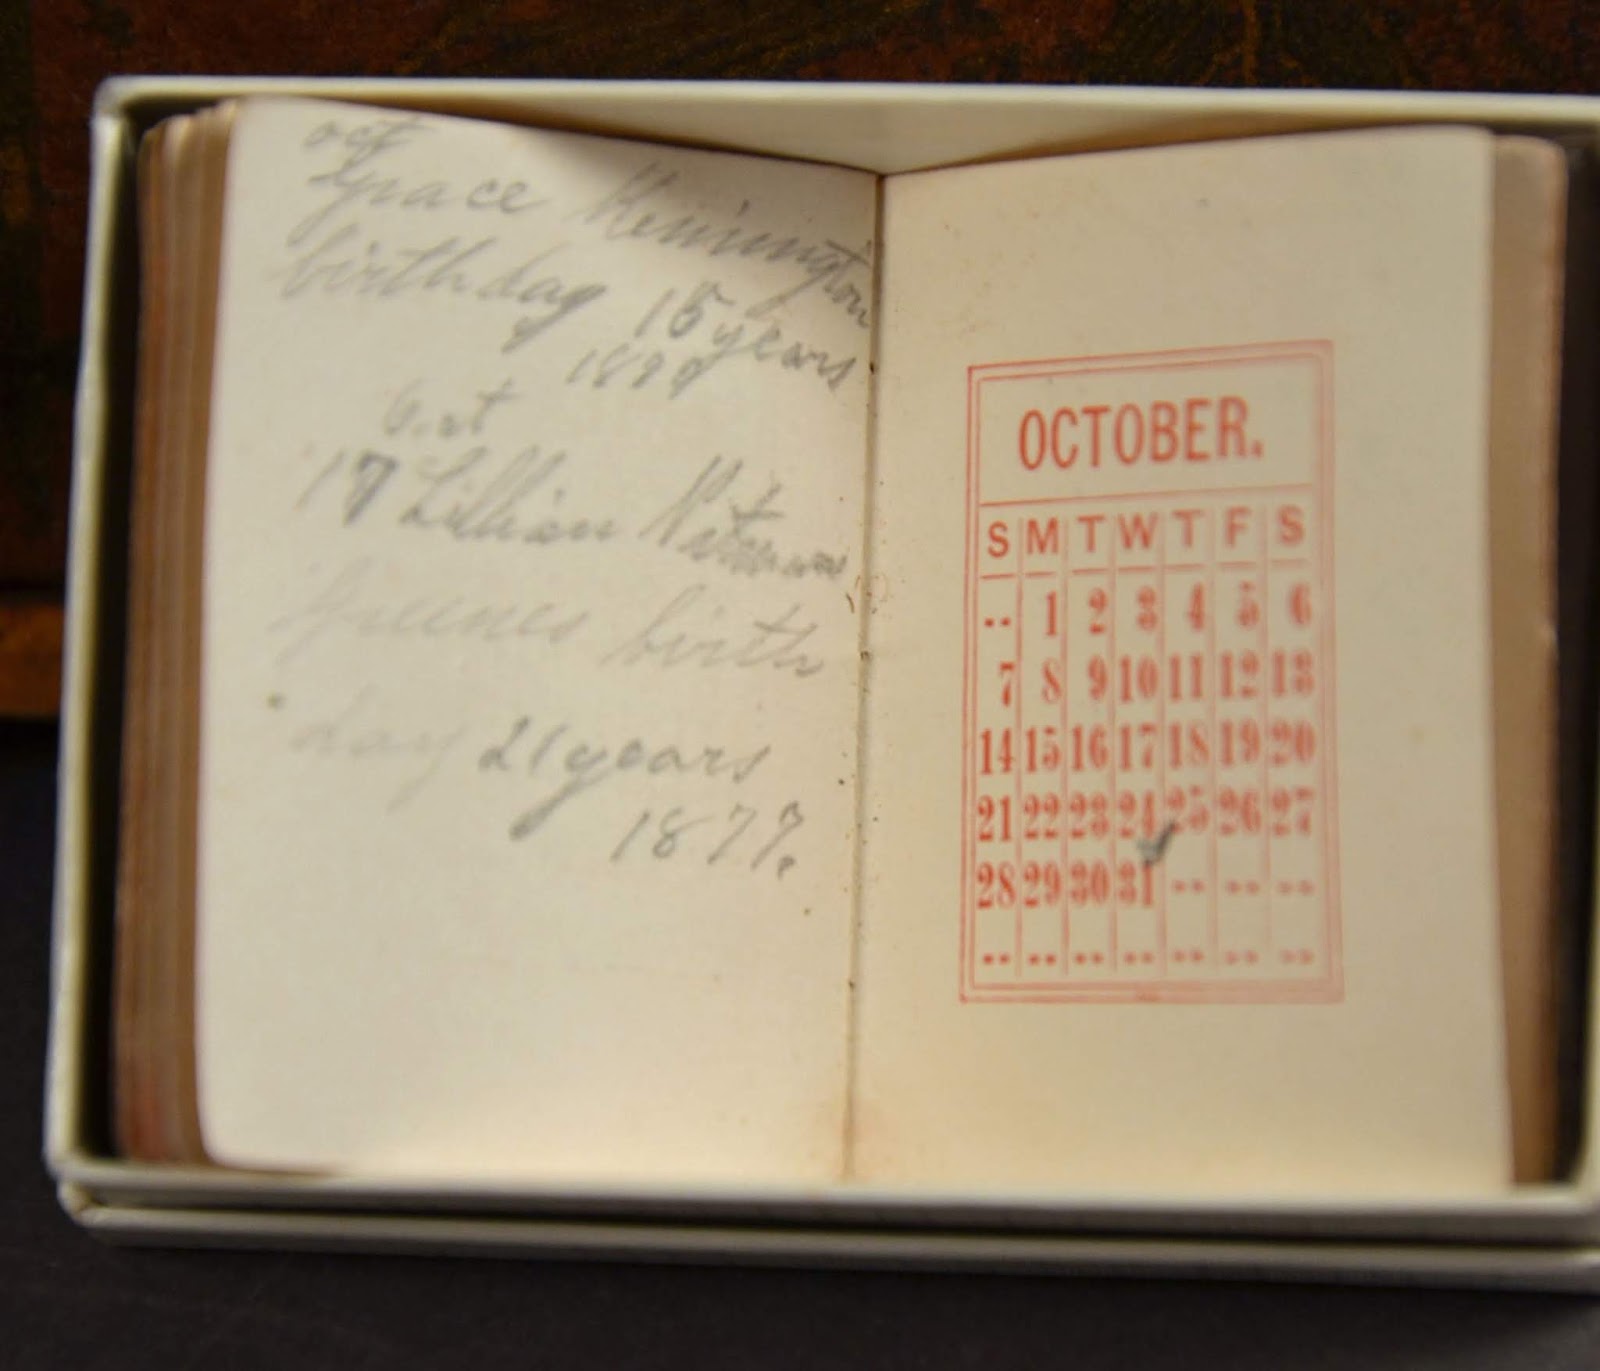 oct
Grace
birthday 15 years
Oct
17 Lillian
Greenes birth
day 21 years
1877.
OCTOBER.
S M T W T F S
.. 1 2 3 4 5 6
7 8 9 10 11 12 13
14 15 16 17 18 19 20
21 22 23 24 25 26 27
28 29 30 31 .. .. ..
.. .. .. .. .. .. ..